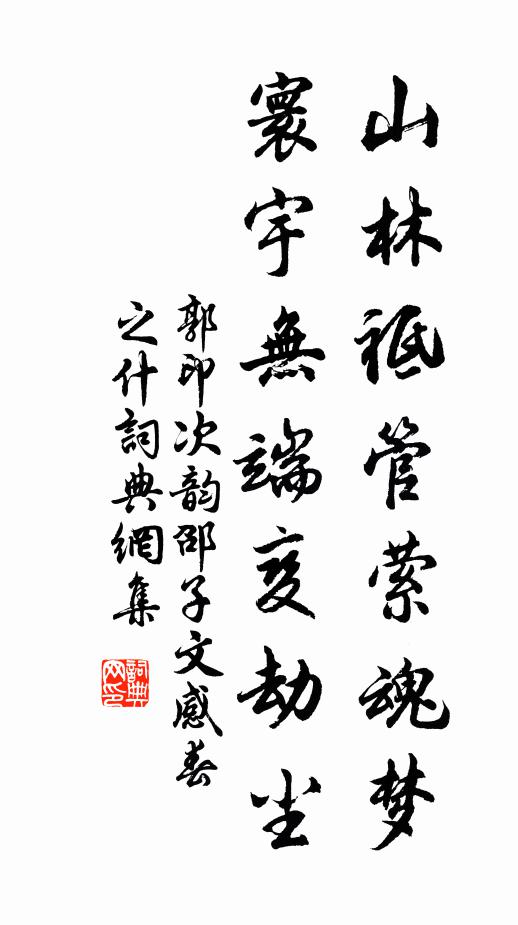 山林祗管萦魂梦
寰宇無端变劫尘
郭印次韵邵子文感春
之什詞典網集
詞典网印